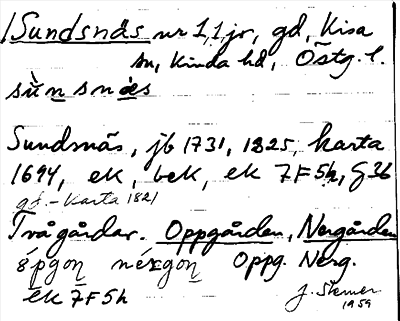 Sundsnäs nr 1, 1 jr, gd, Kisa
sn, Kinda hd, Östg. l.
sùnsnäs
Sundsnäs, jb 1731, 1825, karta
1694, ek, bek, ek 7F5h, G36
gd. - Karta 1821
Två gårdar. Oppgården, Nergården
ópgon nérgon Oppg. Nerg.
ek 7F5h
J. Sterner
1959